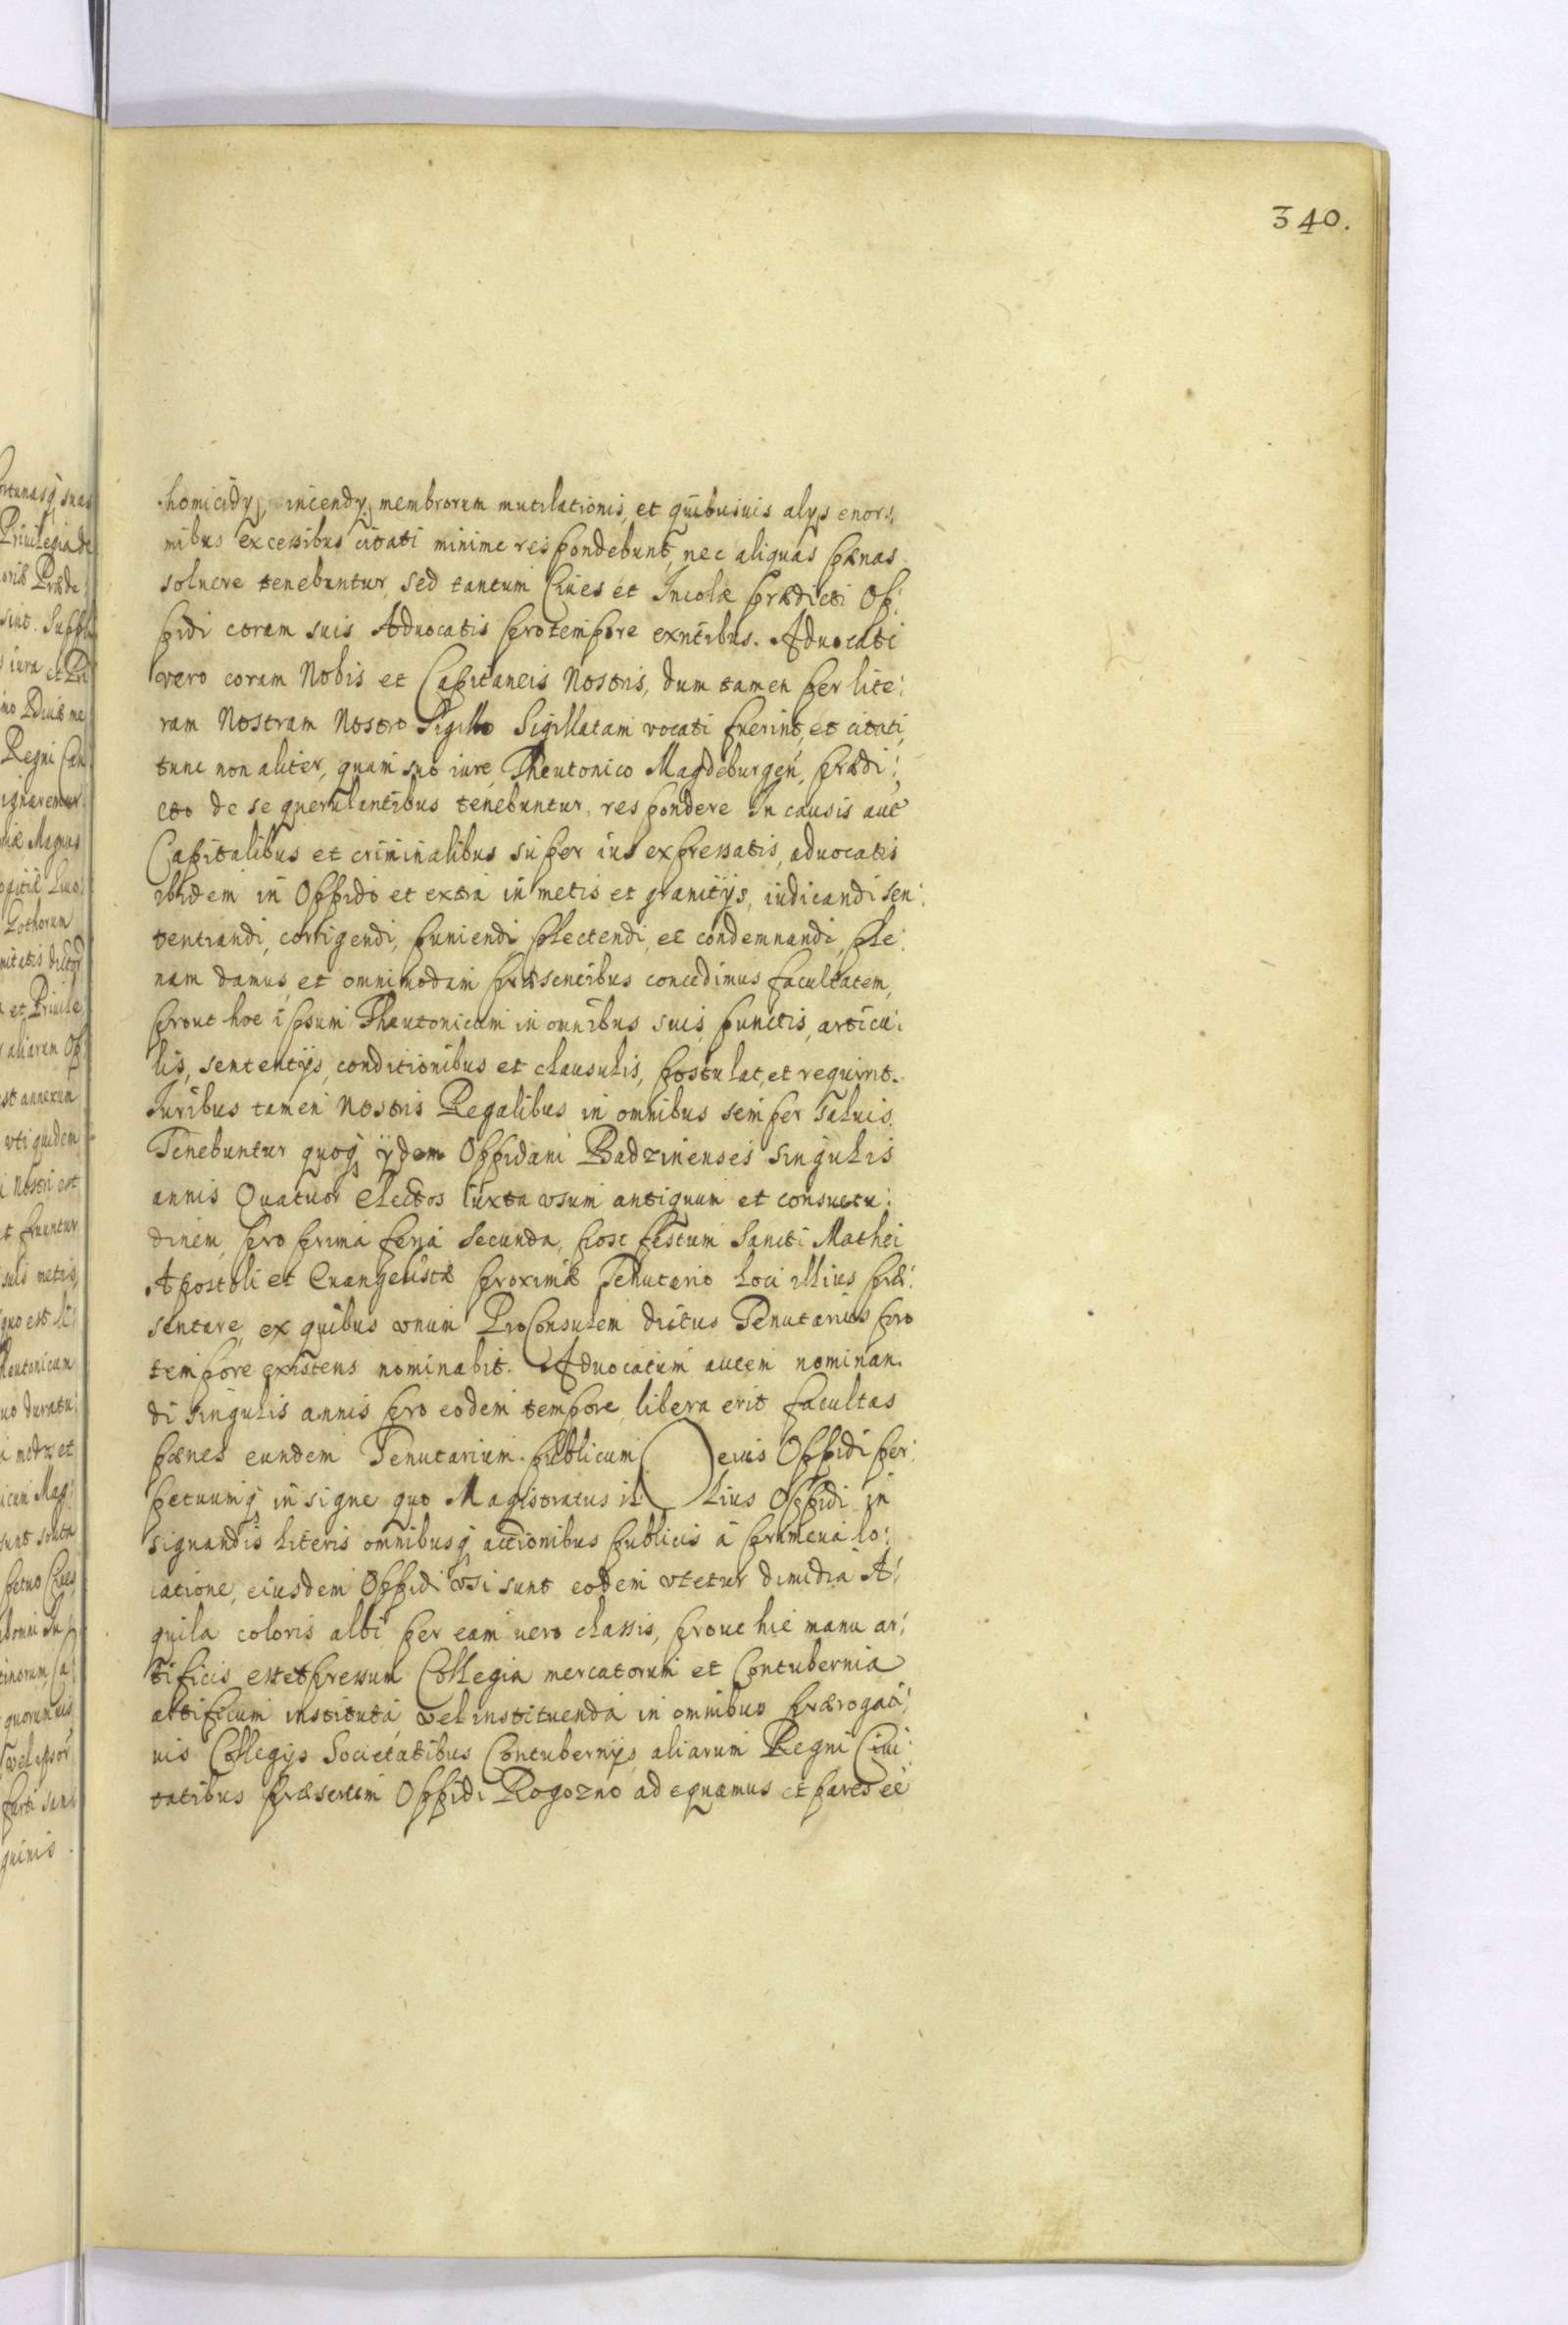 340.
homicidy, incendy, membrorum mutilationis, et quibusuis alys enor:
mibus excessibus citati minime respondebunt, nec aliquas pænas
soluere tenebuntur, sed tantum Ciues et Incolæ prædicti Op:
pidi coram suis Aduocatis pro tempore exntibus. Aduocati
vero coram Nobis et Capitaneis Nostris, dum tamen per lite:
ram Nostram Nostro Sigillo Sigillatam vocati fuerint, et citati,
tunc non aliter, quam suo iure Theutonico Magdeburgen, prædi:
cto de se querulantibus tenebuntur respondere In causis aut
Capitalibus et criminalibus super ius expressatis, aduocatis
ibidem in Oppido et extra in metis et granitijs, iudicandi sen:
tentiandi, corrigendi, puniendi plectendi, et condemnandi, ple:
nam damus, et omnimodam præsentibus concedimus facultatem,
prout hoc ipsum Theutonicum in omnibus suis, punctis, articu:
lis, sententijs, conditionibus et clausulis, postulat, et requirit.
Iuribus tamen Nostris Regalibus in omnibus semper saluis.
Tenebuntur quoq ijdem Oppidani Badzinenses singulis
annis Quatuor electos iuxta vsum antiquum et consuetu:
dinem, pro prima feria secunda, post festum Sancti Mathei
Apostoli et Euangelistæ proximæ Tenutario loci illius præ:
sentare, ex quibus vnum ProConsulem dictus Tenutarius pro
tempore existens nominabit. Aduocatum autem nominan:
di singulis annis pro eodem tempore, libera erit facultas
pænes eundem Tenutarium. publicum eius Oppidi per:
petuumq insigne quo Magistratus il lius Oppidi in
signandis literis omnibusq actionibus publicis á primeua lo:
catione, eiusdem Oppidi vsi sunt eodem vtetur dimidia A:
quila coloris albi per eam vero classis, prout hic manu ar:
tificis est expressum Collegia mercatorum et Contubernia
artificum instituta, vel instituenda in omnibus prærogati:
uis Collegijs Societatibus Contubernijs aliarum Regni Ciui:
tatibus præsertim Oppidi Rogozno adequamus et pares eé